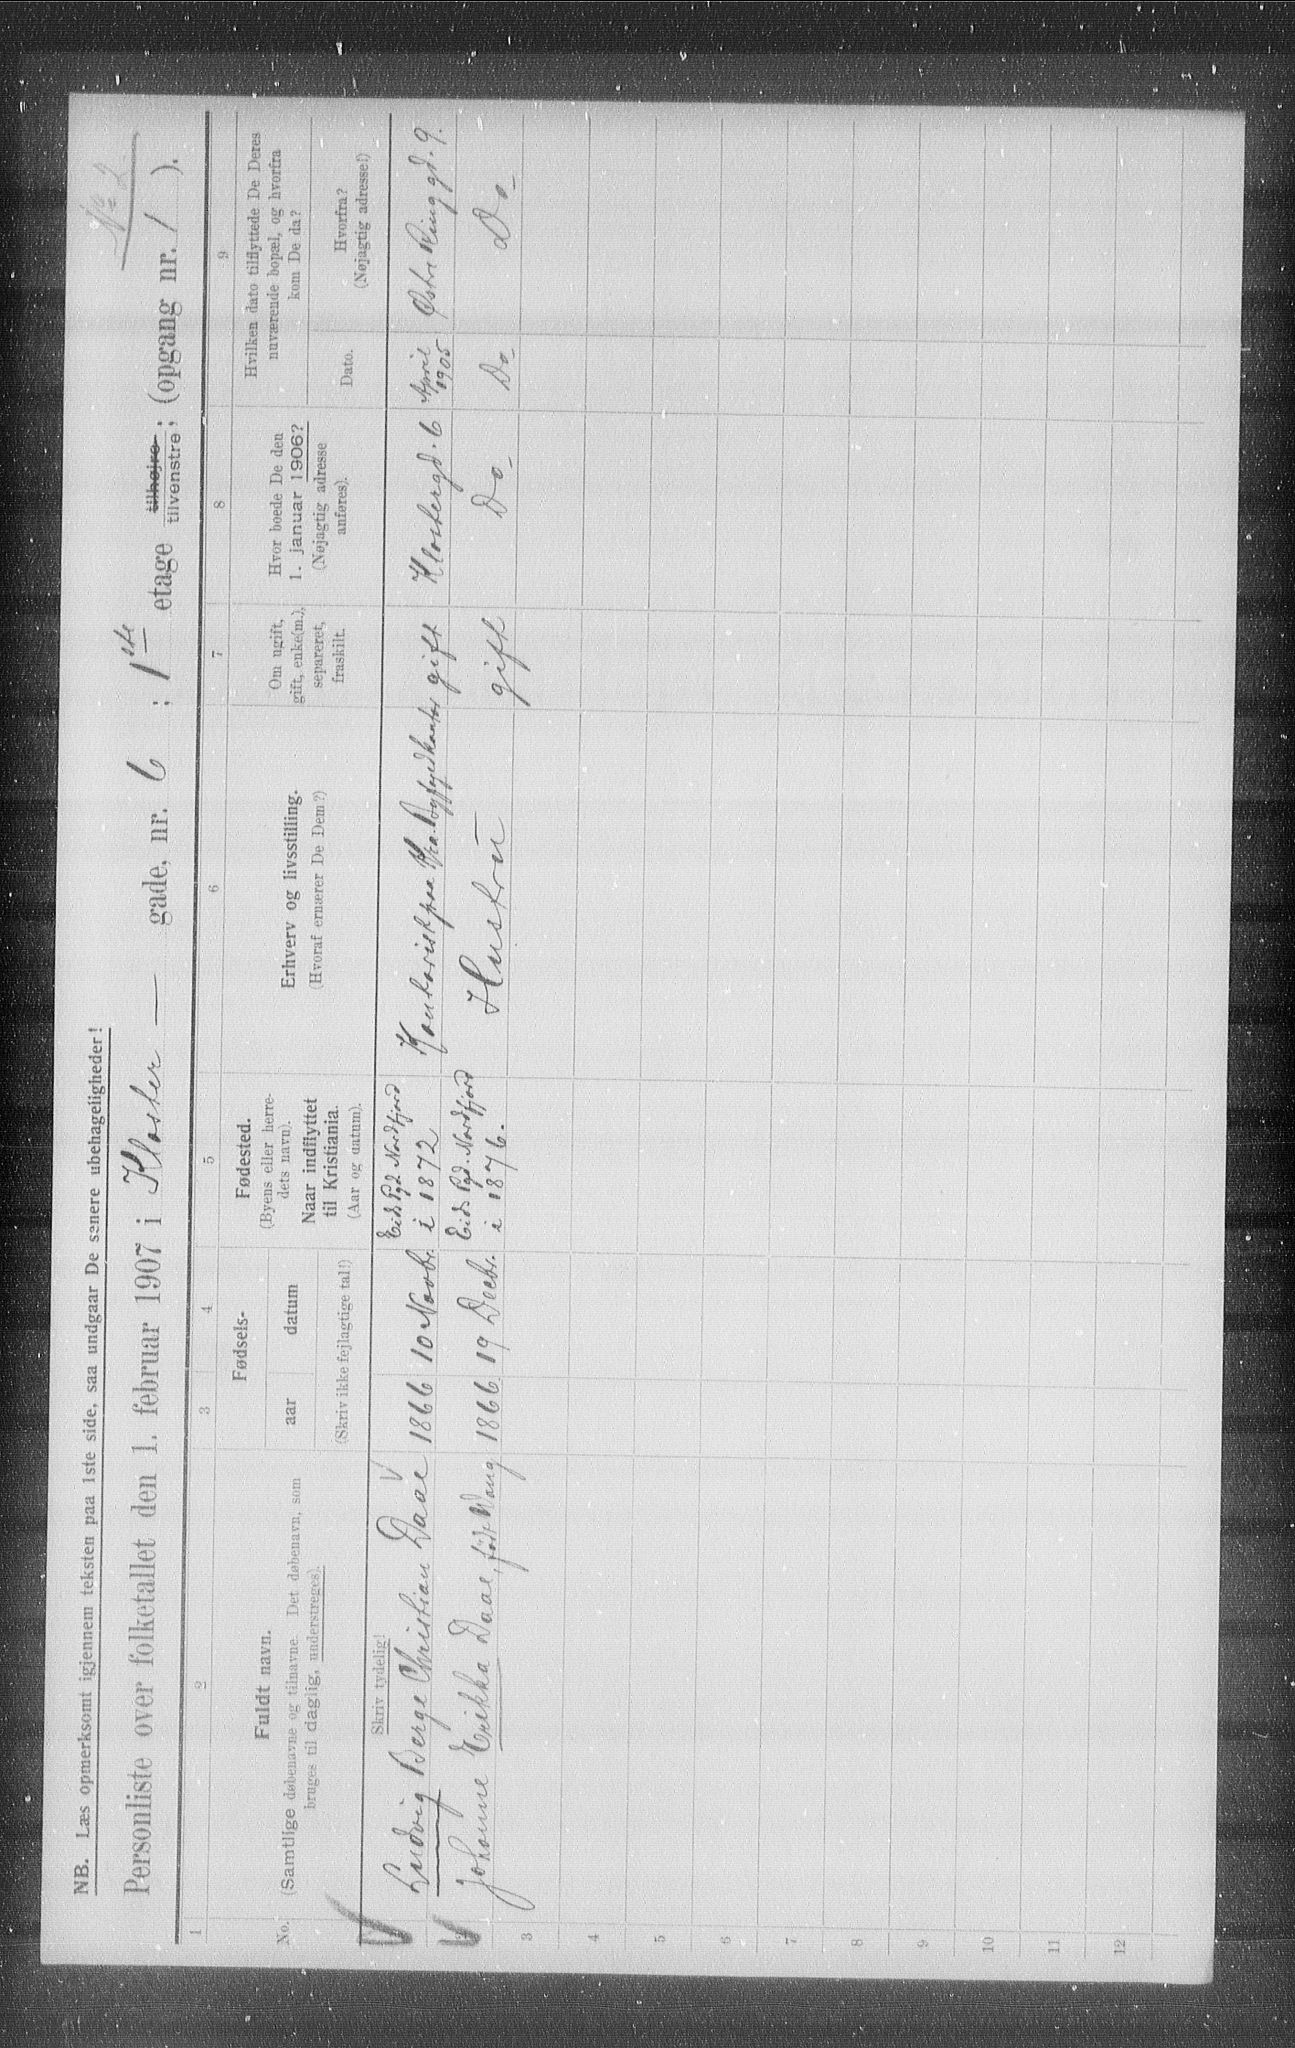 No 2.
NB. Læs opmerksomt igjennem teksten paa 1ste side, saa undgaar De senere ubehageligheder!
Personliste over folketallet den 1. februar 1907 i Kloster — gade, nr. 6 ; 1ste etage tilhøjre tilvenstre; (opgang nr. 1 ).
1 2 3 4 5 6 7 8 9
No.
Fuldt navn.
(Samtlige døbenavne og tilnavne. Det døbenavn, som
bruges til daglig, understreges).
Skriv tydelig!
Fødsels-
aar datum
(Skriv ikke fejlagtige tal!)
Fødested.
(Byens eller herre-
dets navn).
Naar indflyttet
til Kristiania.
(Aar og datum).
Erhverv og livsstilling.
(Hvoraf ernærer De Dem?)
Om ugift,
gift, enke(m.),
separeret,
fraskilt.
Hvor boede De den
1. januar 1906?
(Nøjagtig adresse
anføres).
Hvilken dato tilflyttede De Deres
nuværende bopæl, og hvorfra
kom De da?
Dato.
Hvorfra?
(Nøjagtig adresse!)
Ludvig Berge Christian Daae 1866 10 Novbr. Eids Pgd. Nordfjord i 1872 Kontorist paa gift Klostergd. 6 April 1905 Østre Ringgd. 9.
Johanne Erikka Daae, født Waug 1866 19 Decbr. Eids Pgd. Nordfjord i 1876. Hustru gift Do Do Do
3
4
5
6
7
8
9
10
11
12